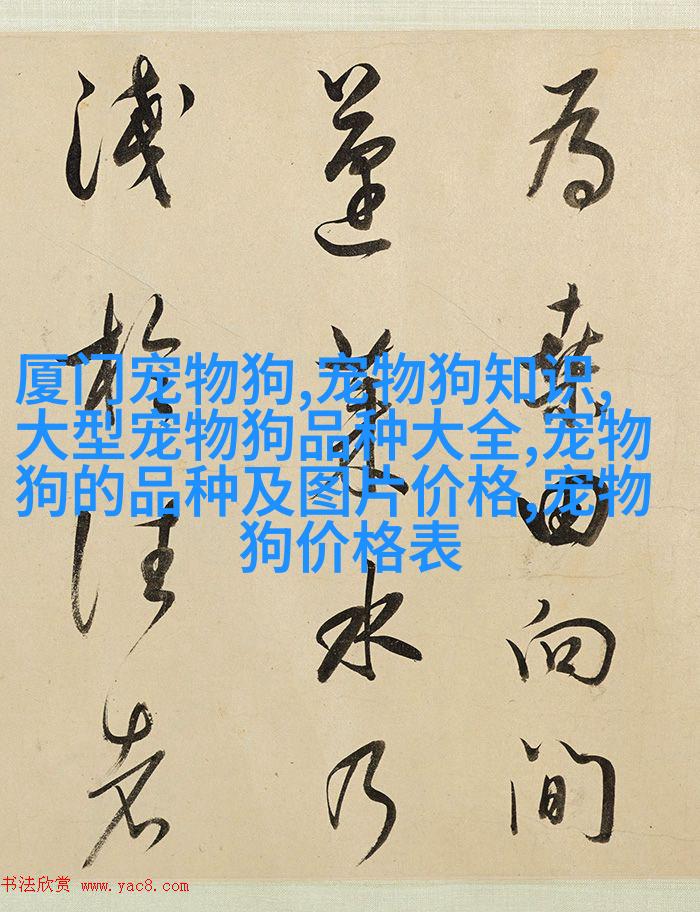 為桑田向間
蓬萊水乃
淺於往者
厦门宠物狗,宠物狗知识,
大型宠物狗品种大全,宠物
狗的品种及图片价格,宠物
狗价格表
书法欣赏 www.yac8.com